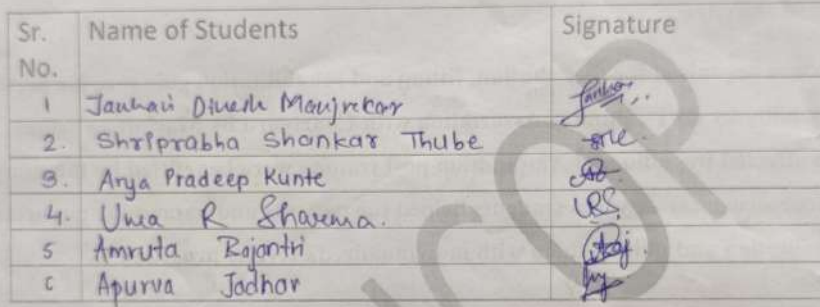 Sr. No. Name of Students Signature
1 Janhavi Dinesh Manjrekar
2. Shriprabha Shankar Thube
3. Arya Pradeep Kunte
4. Uma R Sharma. URS
5 Amruta Rajantri
6 Apurva Jadhav